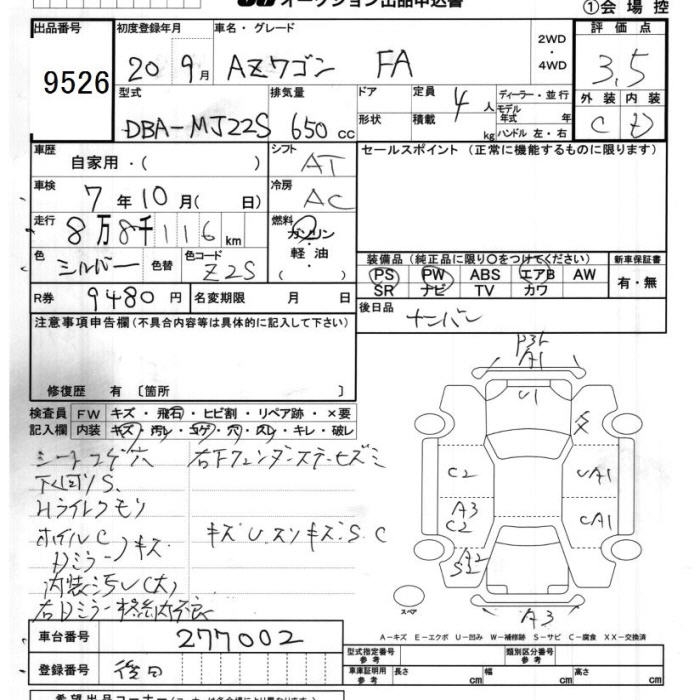 オークション出品申込書
①会場控
出品番号
9526
初度登録年月
20 9月
車名・グレード
AZワゴン FA
2WD
・
4WD
評価点
3.5
外装 内装
C D
型式
DBA-MJ22S
排気量
650 cc
ドア
形状
定員 4人
積載 kg
ディーラー・並行
モデル
年式 年
ハンドル 左・右
車歴
自家用・( )
シフト
AT
車検
7年10月( 日)
冷房
AC
走行
8万8千116km
燃料
ガソリン
・
軽油
・
( )
色
シルバー
色替
色コード
Z2S
R券
9480円
名変期限 月 日
セールスポイント (正常に機能するものに限ります)
装備品(純正品に限り○をつけてください)
PS PW ABS エアB AW
SR ナビ TV カワ
新車保証書
有・無
後日品
ナンバン
注意事項申告欄(不具合内容等は具体的に記入して下さい)
修復歴 有〔箇所 〕
検査員 FW キズ・飛石・ヒビ割・リペア跡・×要
記入欄 内装 キズ・汚レ・コゲ・穴・スレ・キレ・破レ
シートコゲ穴 右Fフェンダーステーセズミ
下回りS.
Hライトクモリ
ホイルC キズU.スリキズ.S C
Dミラーキズ.
内装汚レ(大)
右Dミラー格納不良
A1
U1
C2
UA1
A3
C2
CA1
A2
A3
スペア
A-キズ E-エクボ U-凹み W-補修跡 S-サビ C-腐食 XX-交換済
車台番号
277002
登録番号
後日
型式指定番号
参考
類別区分番号
参考
車庫証明用
参考
長さ cm 幅 cm 高さ cm